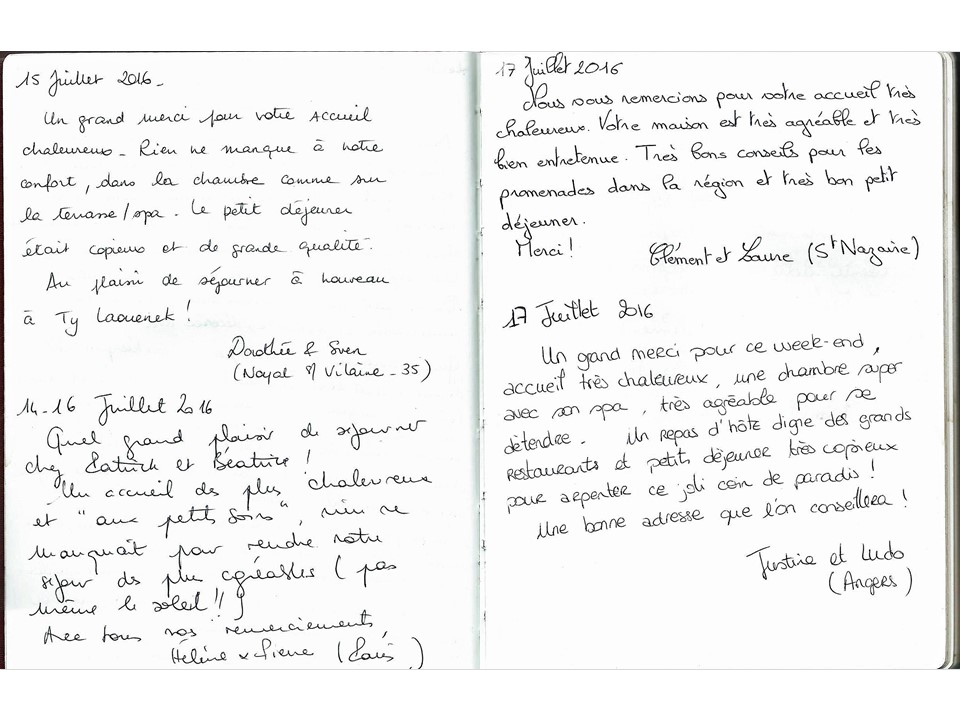 15 Juillet 2016 -
Un grand merci pour votre accueil
chaleureux - Rien ne manque à notre
confort, dans la chambre comme sur
la terrasse/spa. Le petit déjeuner
était copieux et de grande qualité.
Au plaisir de séjourner à nouveau
à Ty Laouenek !
Dorothée & Sven
(Noyal S/ Vilaine - 35)
14-16 Juillet 2016
Quel grand plaisir de séjourner
chez Patrick et Béatrice !
Un accueil des plus chaleureux
et "aux petits soins", rien ne
manquait pour rendre notre
séjour des plus agréables (pas
même le soleil !!)
Avec tous nos remerciements,
Hélène & Pierre (Paris)
17 Juillet 2016
Nous vous remercions pour votre accueil très
chaleureux. Votre maison est très agréable et très
bien entretenue. Très bons conseils pour les
promenades dans la région et très bon petit
déjeuner.
Merci !
Clément et Laure (St Nazaire)
17 Juillet 2016
Un grand merci pour ce week-end,
accueil très chaleureux, une chambre super
avec son spa, très agréable pour se
détendre - Un repas d'hôte digne des grands
restaurants et petits déjeuner très copieux
pour arpenter ce joli coin de paradis !
Une bonne adresse que l'on conseillera !
Justine et Ludo
(Angers)